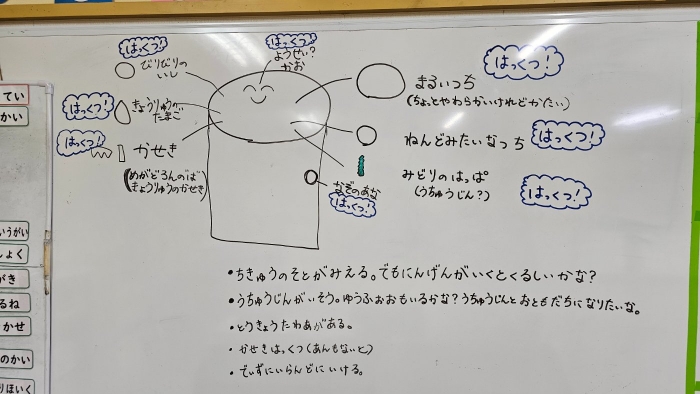 はっくつ!
びりびりの
いし
はっくつ!
ようせい?
かお
はっくつ!
まるいっち
(ちょっとやわらかいけれどかたい)
はっくつ!
きょうりゅうの
たまご
はっくつ!
ねんどみたいなっち
はっくつ!
かせき
(めがどろんのば
きょうりゅうのかせき)
みどりのはっぱ
(うちゅうじん?)
はっくつ!
なぞのあな
はっくつ!
・ちきゅうのそとがみえる。でもにんげんがいくとくるしいかな?
・うちゅうじんがいそう。ゆうふぉおもいるかな?うちゅうじんとおともだちになりたいな。
・とうきょうたわあがある。
・かせきはっくつ(あんもないと)
・でぃずにいらんどにいける。
てい
かい
いうがい
しょく
がき
るね
かせ
のかい
りほいく